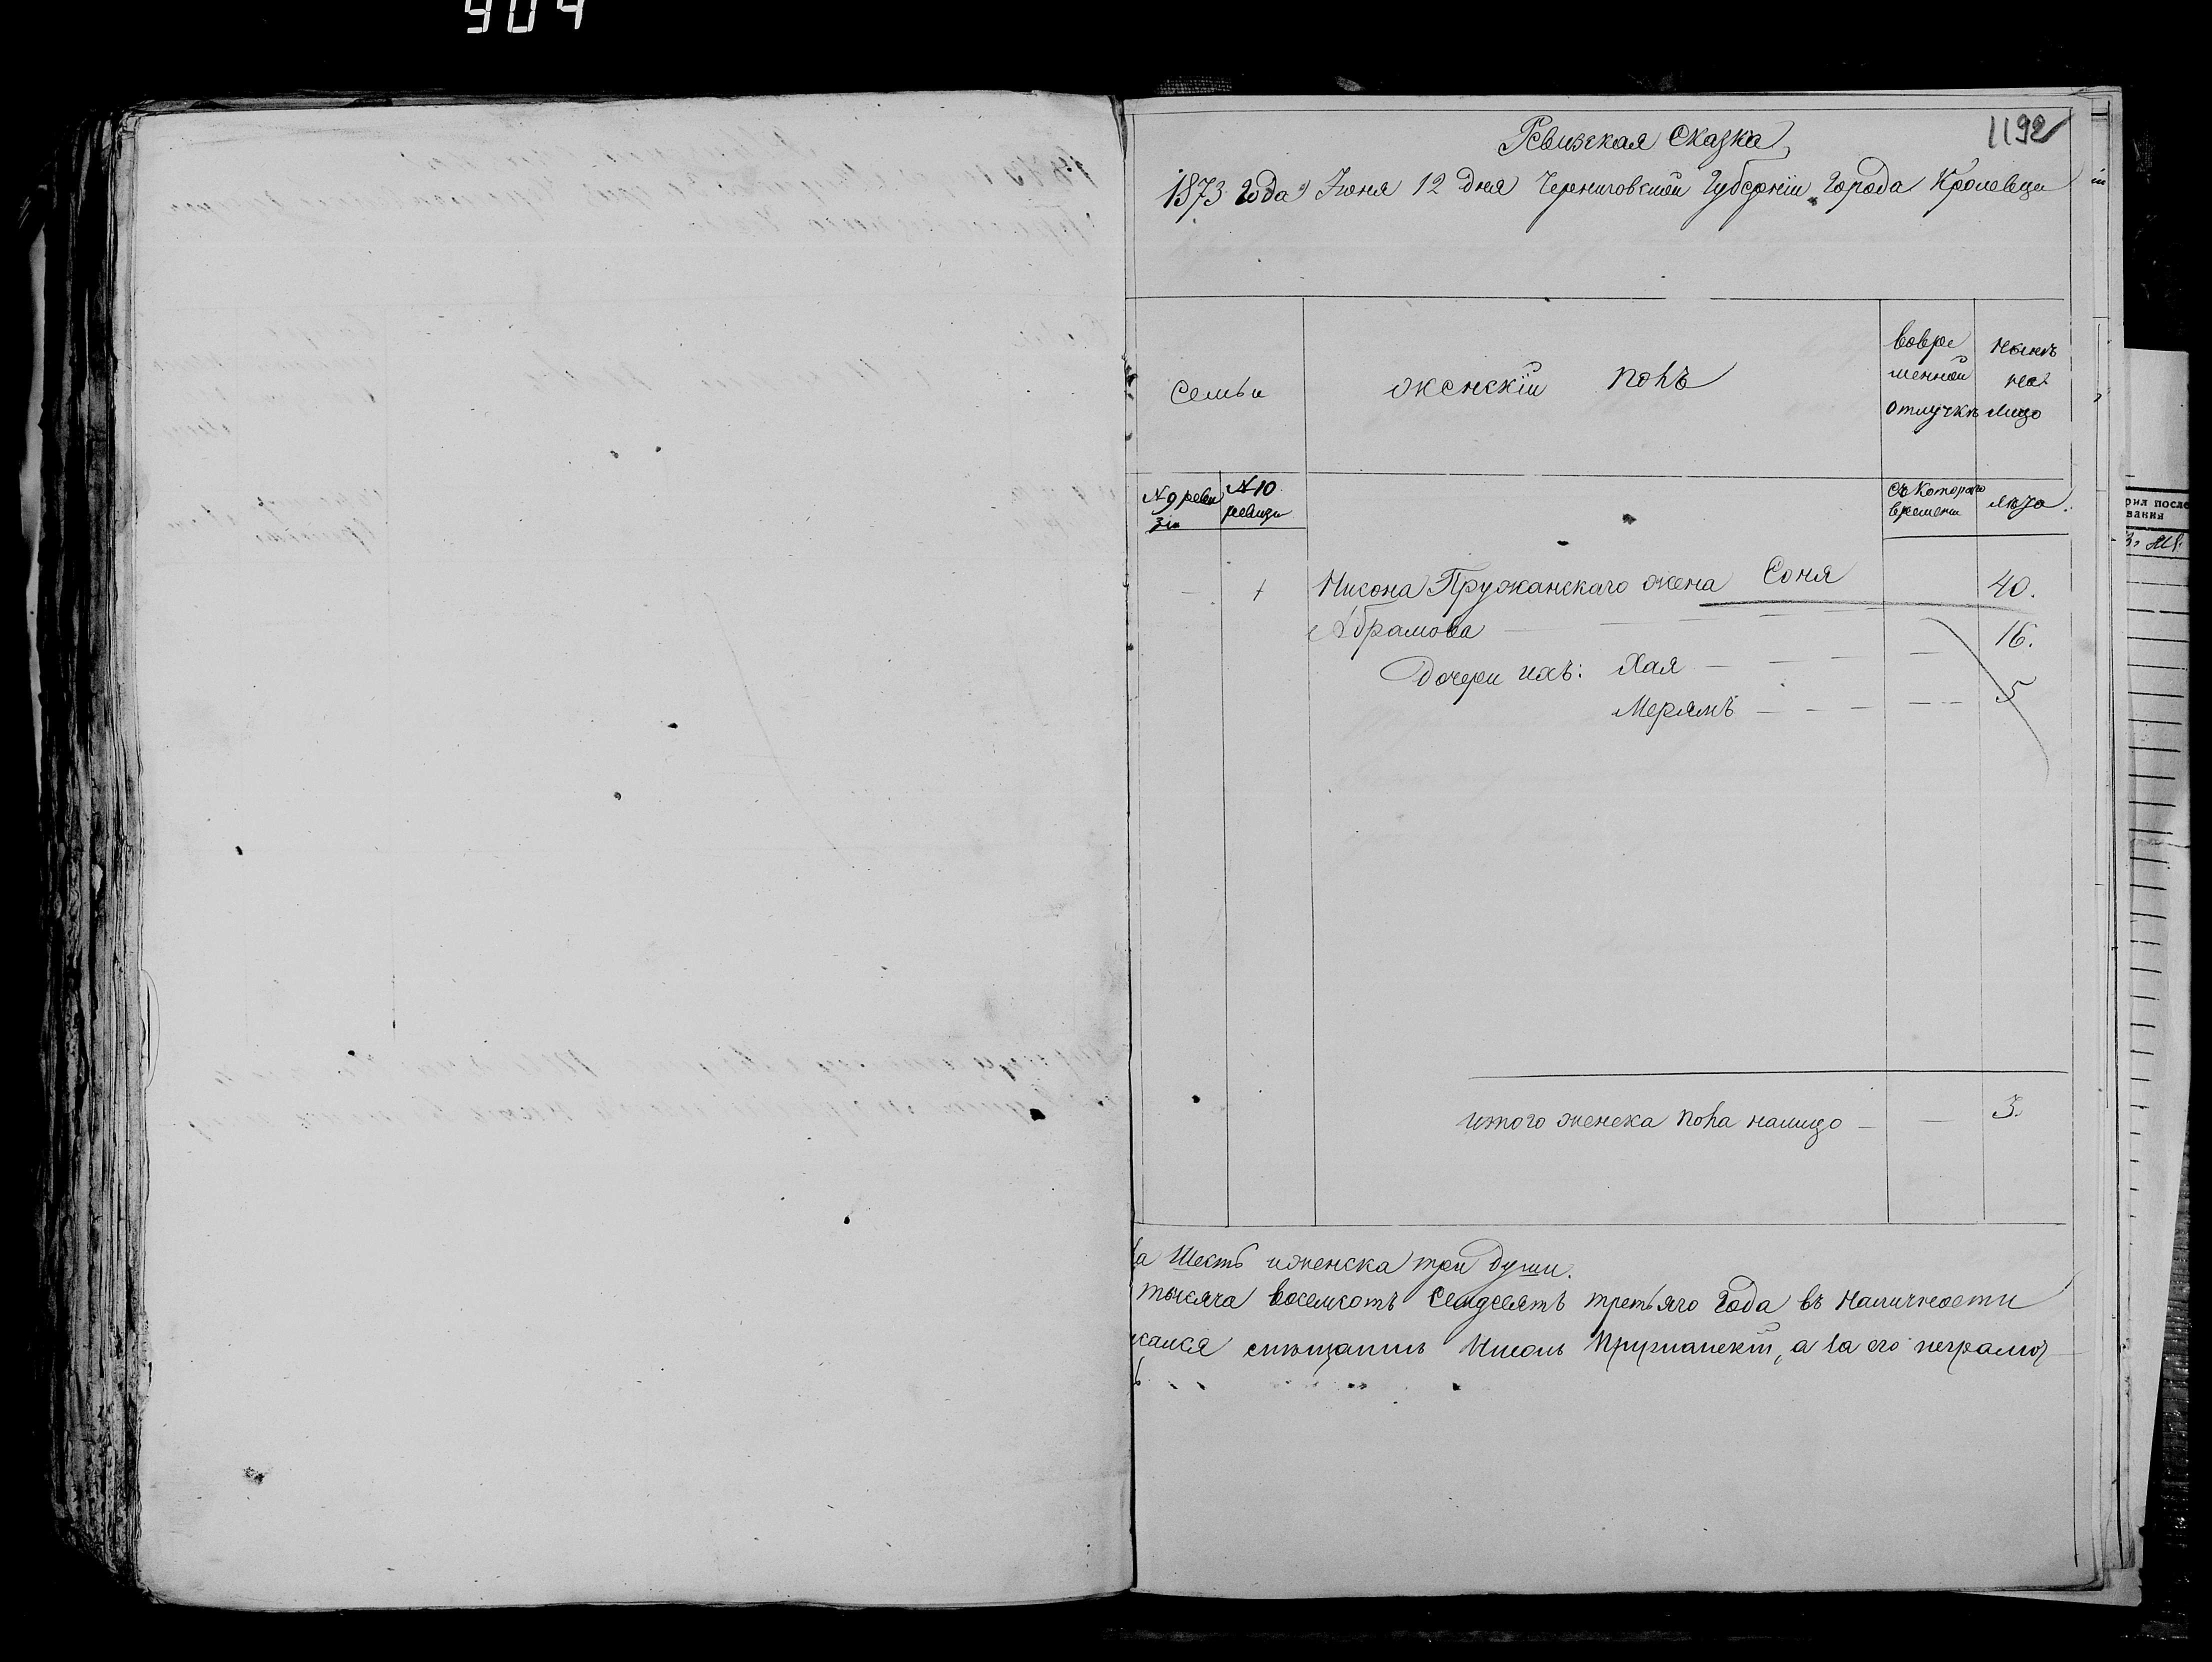 904
1192
Ревизская Сказка
1873 года Июня 12 дня Черниговской Губерніи Города Кролевца
Семьи
женскій полъ
вовре
менной
отлучкѣ
нынѣ
на
лицо
№ 9 реви
зіи
№ 10
ревизи
Съ Котораго
времени
лѣта.
Нисона Пружанскаго жена Соня 40.
Абрамова 16.
Дочери ихъ: Хая 5
Мерямъ
итого женска пола налицо 3.
ла Шесть и женска три души.
тысяча восемсотъ Семдесятъ третьяго Года въ наличности
мѣщанинъ Нисонъ Пружанскій, а за его неграмот
рил после
вания